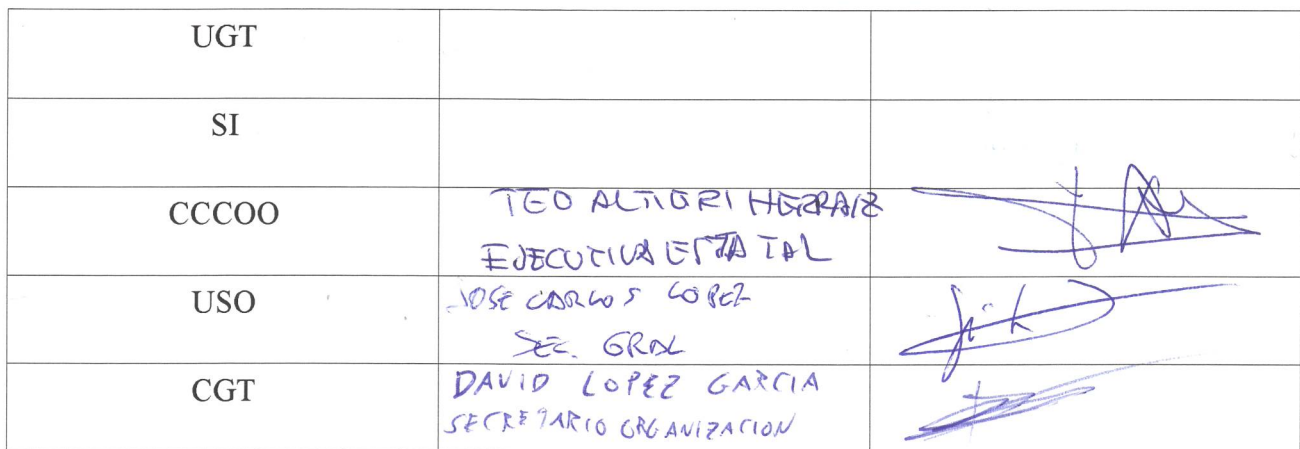 UGT
SI
CCCOO
TEO ALTIERI HERRAIZ
EJECUTIVA ESTATAL
USO
JOSE CARLOS LOPEZ
SEC. GRAL
CGT
DAVID LOPEZ GARCIA
SECRETARIO ORGANIZACION